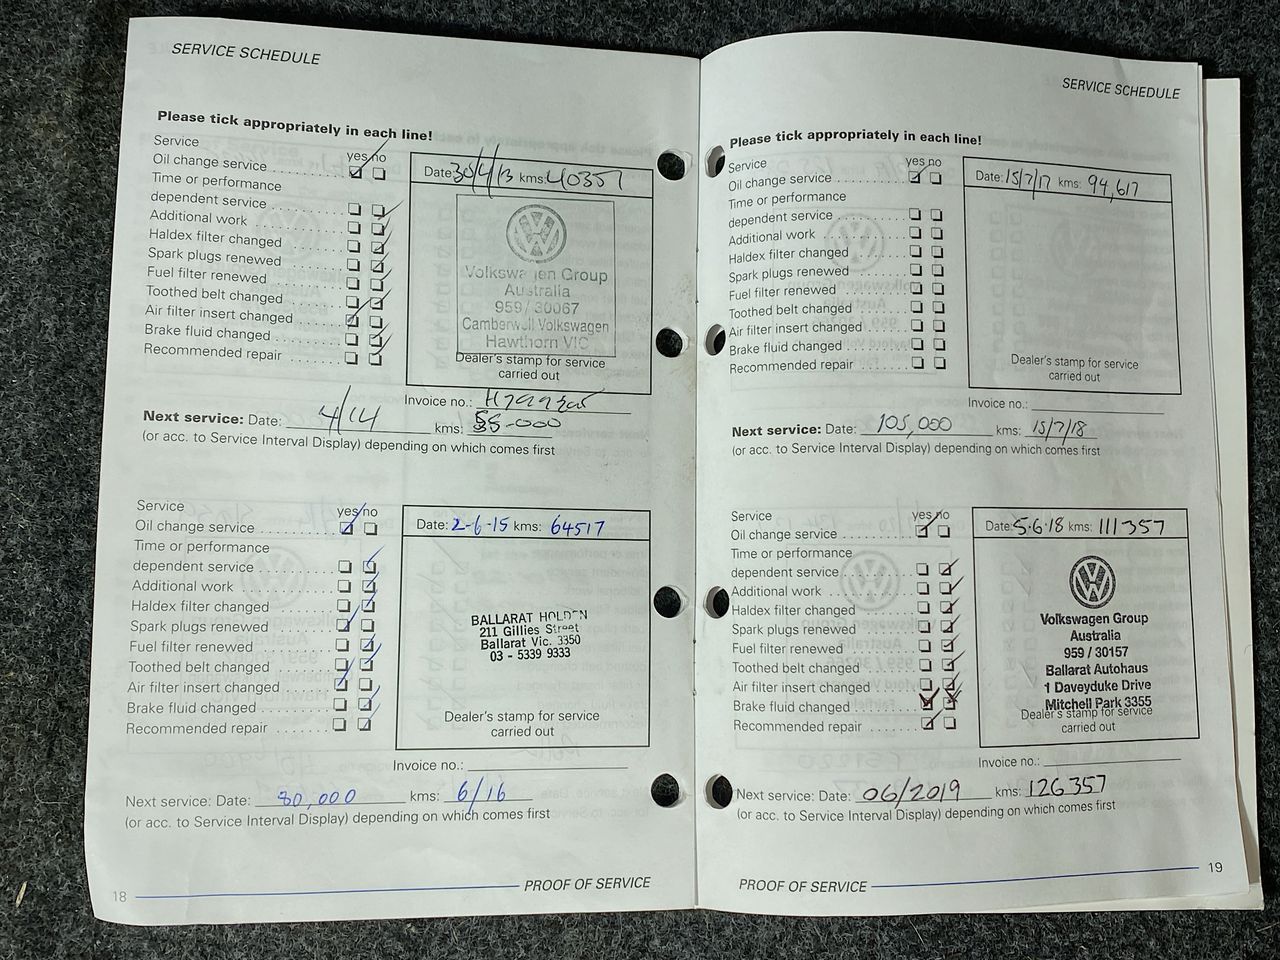 SERVICE SCHEDULE
Please tick appropriately in each line!
Service
yes no
Oil change service
Time or performance
dependent service
Additional work
Haldex filter changed
Spark plugs renewed
Fuel filter renewed
Toothed belt changed
Air filter insert changed
Brake fluid changed
Recommended repair
Date: 30/4/13 kms: 40357
Volkswagen Group
Australia
959 / 30067
Camberwell Volkswagen
Hawthorn VIC
Dealer's stamp for service
carried out
Invoice no.:
Next service: Date: 4/14 kms: 55-000
(or acc. to Service Interval Display) depending on which comes first
Service
yes no
Oil change service
Time or performance
dependent service
Additional work
Haldex filter changed
Spark plugs renewed
Fuel filter renewed
Toothed belt changed
Air filter insert changed
Brake fluid changed
Recommended repair
Date: 2-6-15 kms: 64517
BALLARAT HOLDEN
211 Gillies Street
Ballarat Vic. 3350
03 - 5339 9333
Dealer's stamp for service
carried out
Invoice no.:
Next service: Date: 80,000 kms: 6/16
(or acc. to Service Interval Display) depending on which comes first
18
PROOF OF SERVICE
SERVICE SCHEDULE
Please tick appropriately in each line!
Service
yes no
Oil change service
Time or performance
dependent service
Additional work
Haldex filter changed
Spark plugs renewed
Fuel filter renewed
Toothed belt changed
Air filter insert changed
Brake fluid changed
Recommended repair
Date: 15/7/17 kms: 94,617
Dealer's stamp for service
carried out
Invoice no.:
Next service: Date: 105,000 kms: 15/7/18
(or acc. to Service Interval Display) depending on which comes first
Service
yes no
Oil change service
Time or performance
dependent service
Additional work
Haldex filter changed
Spark plugs renewed
Fuel filter renewed
Toothed belt changed
Air filter insert changed
Brake fluid changed
Recommended repair
Date: 5·6·18 kms: 111357
Volkswagen Group
Australia
959 / 30157
Ballarat Autohaus
1 Daveyduke Drive
Mitchell Park 3355
Dealer's stamp for service
carried out
Invoice no.:
Next service: Date: 06/2019 kms: 126357
(or acc. to Service Interval Display) depending on which comes first
PROOF OF SERVICE
19